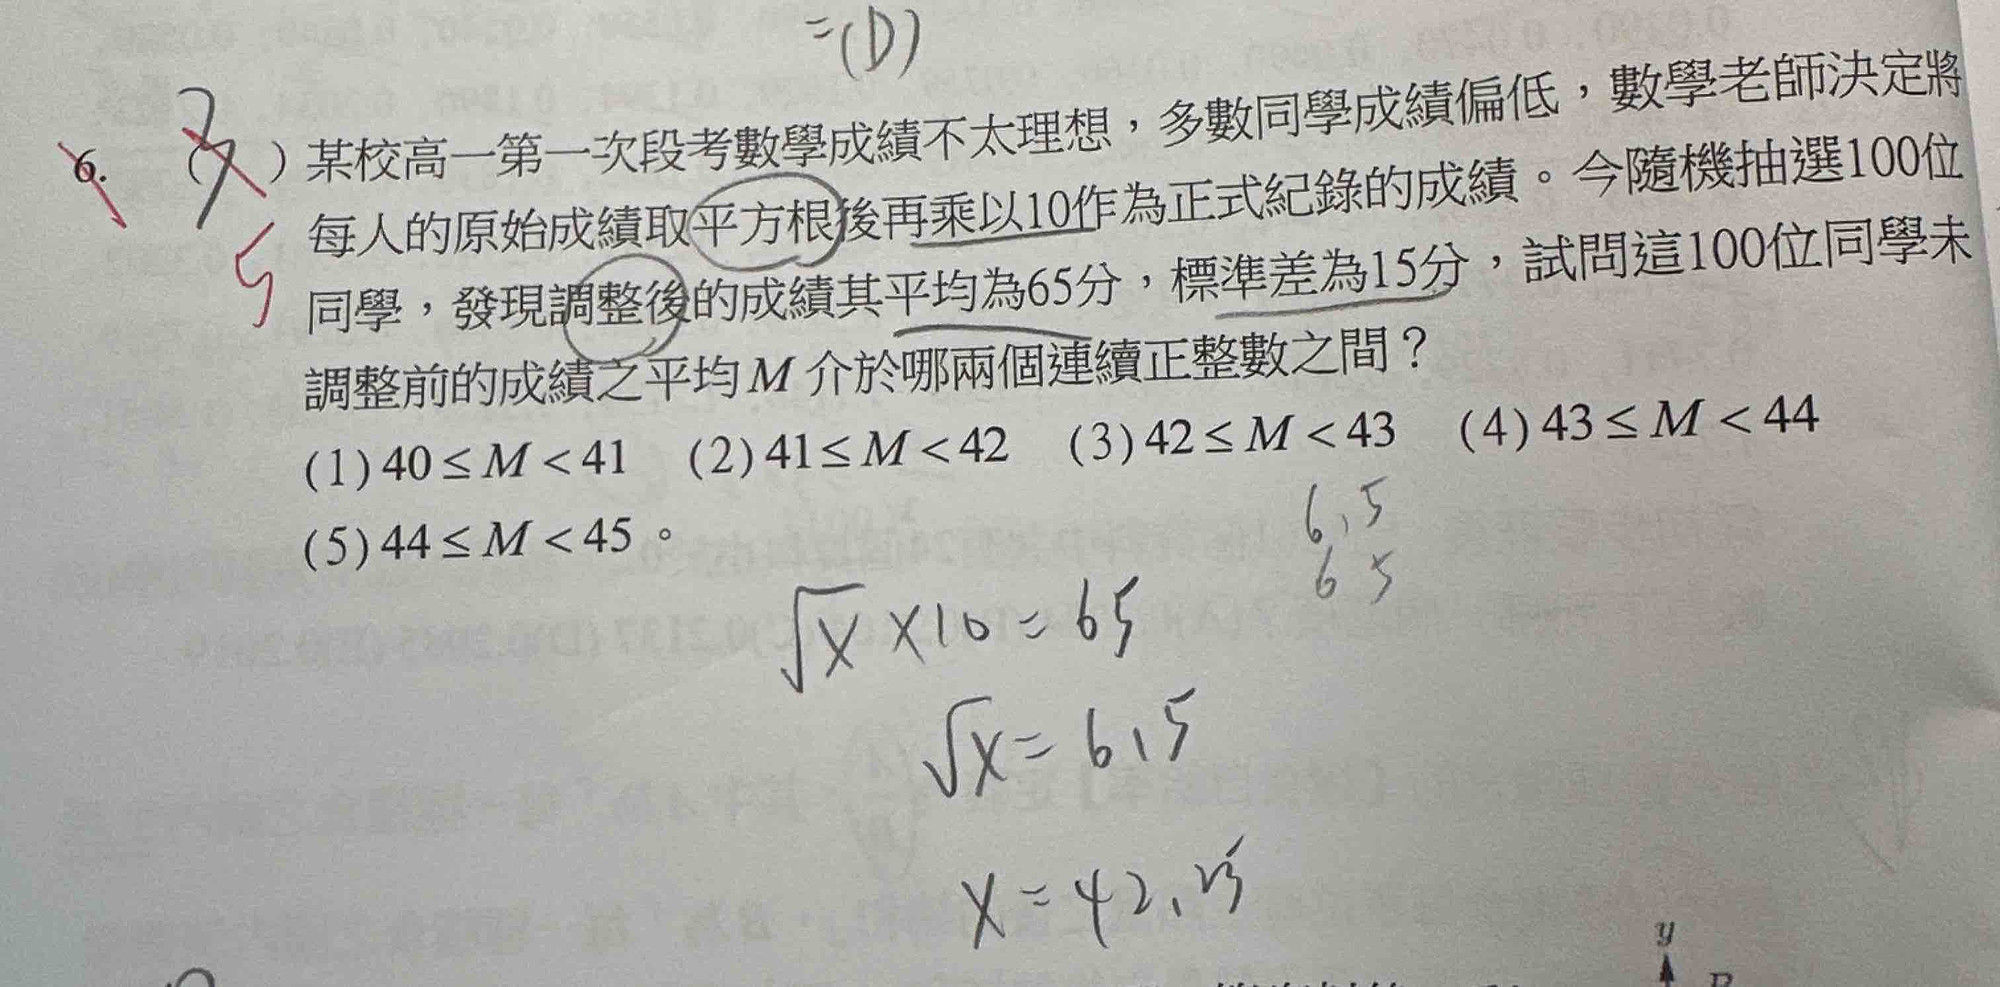 =(D)
6. ( ) 某校高一第一次段考數學成績不太理想，多數同學成績偏低，數學老師決定將
每人的原始成績取平方根後再乘以10作為正式紀錄的成績。今隨機抽選100位
5
同學，發現調整後的成績其平均為65分，標準差為15分，試問這100位同學未
調整前的成績之平均M 介於哪兩個連續正整數之間？
(1) 40≤M<41 (2) 41≤M<42 (3) 42≤M<43 (4) 43≤M<44
(5) 44≤M<45。
6.5
65
√x ×10=65
√x=6.5
x=42.25
y